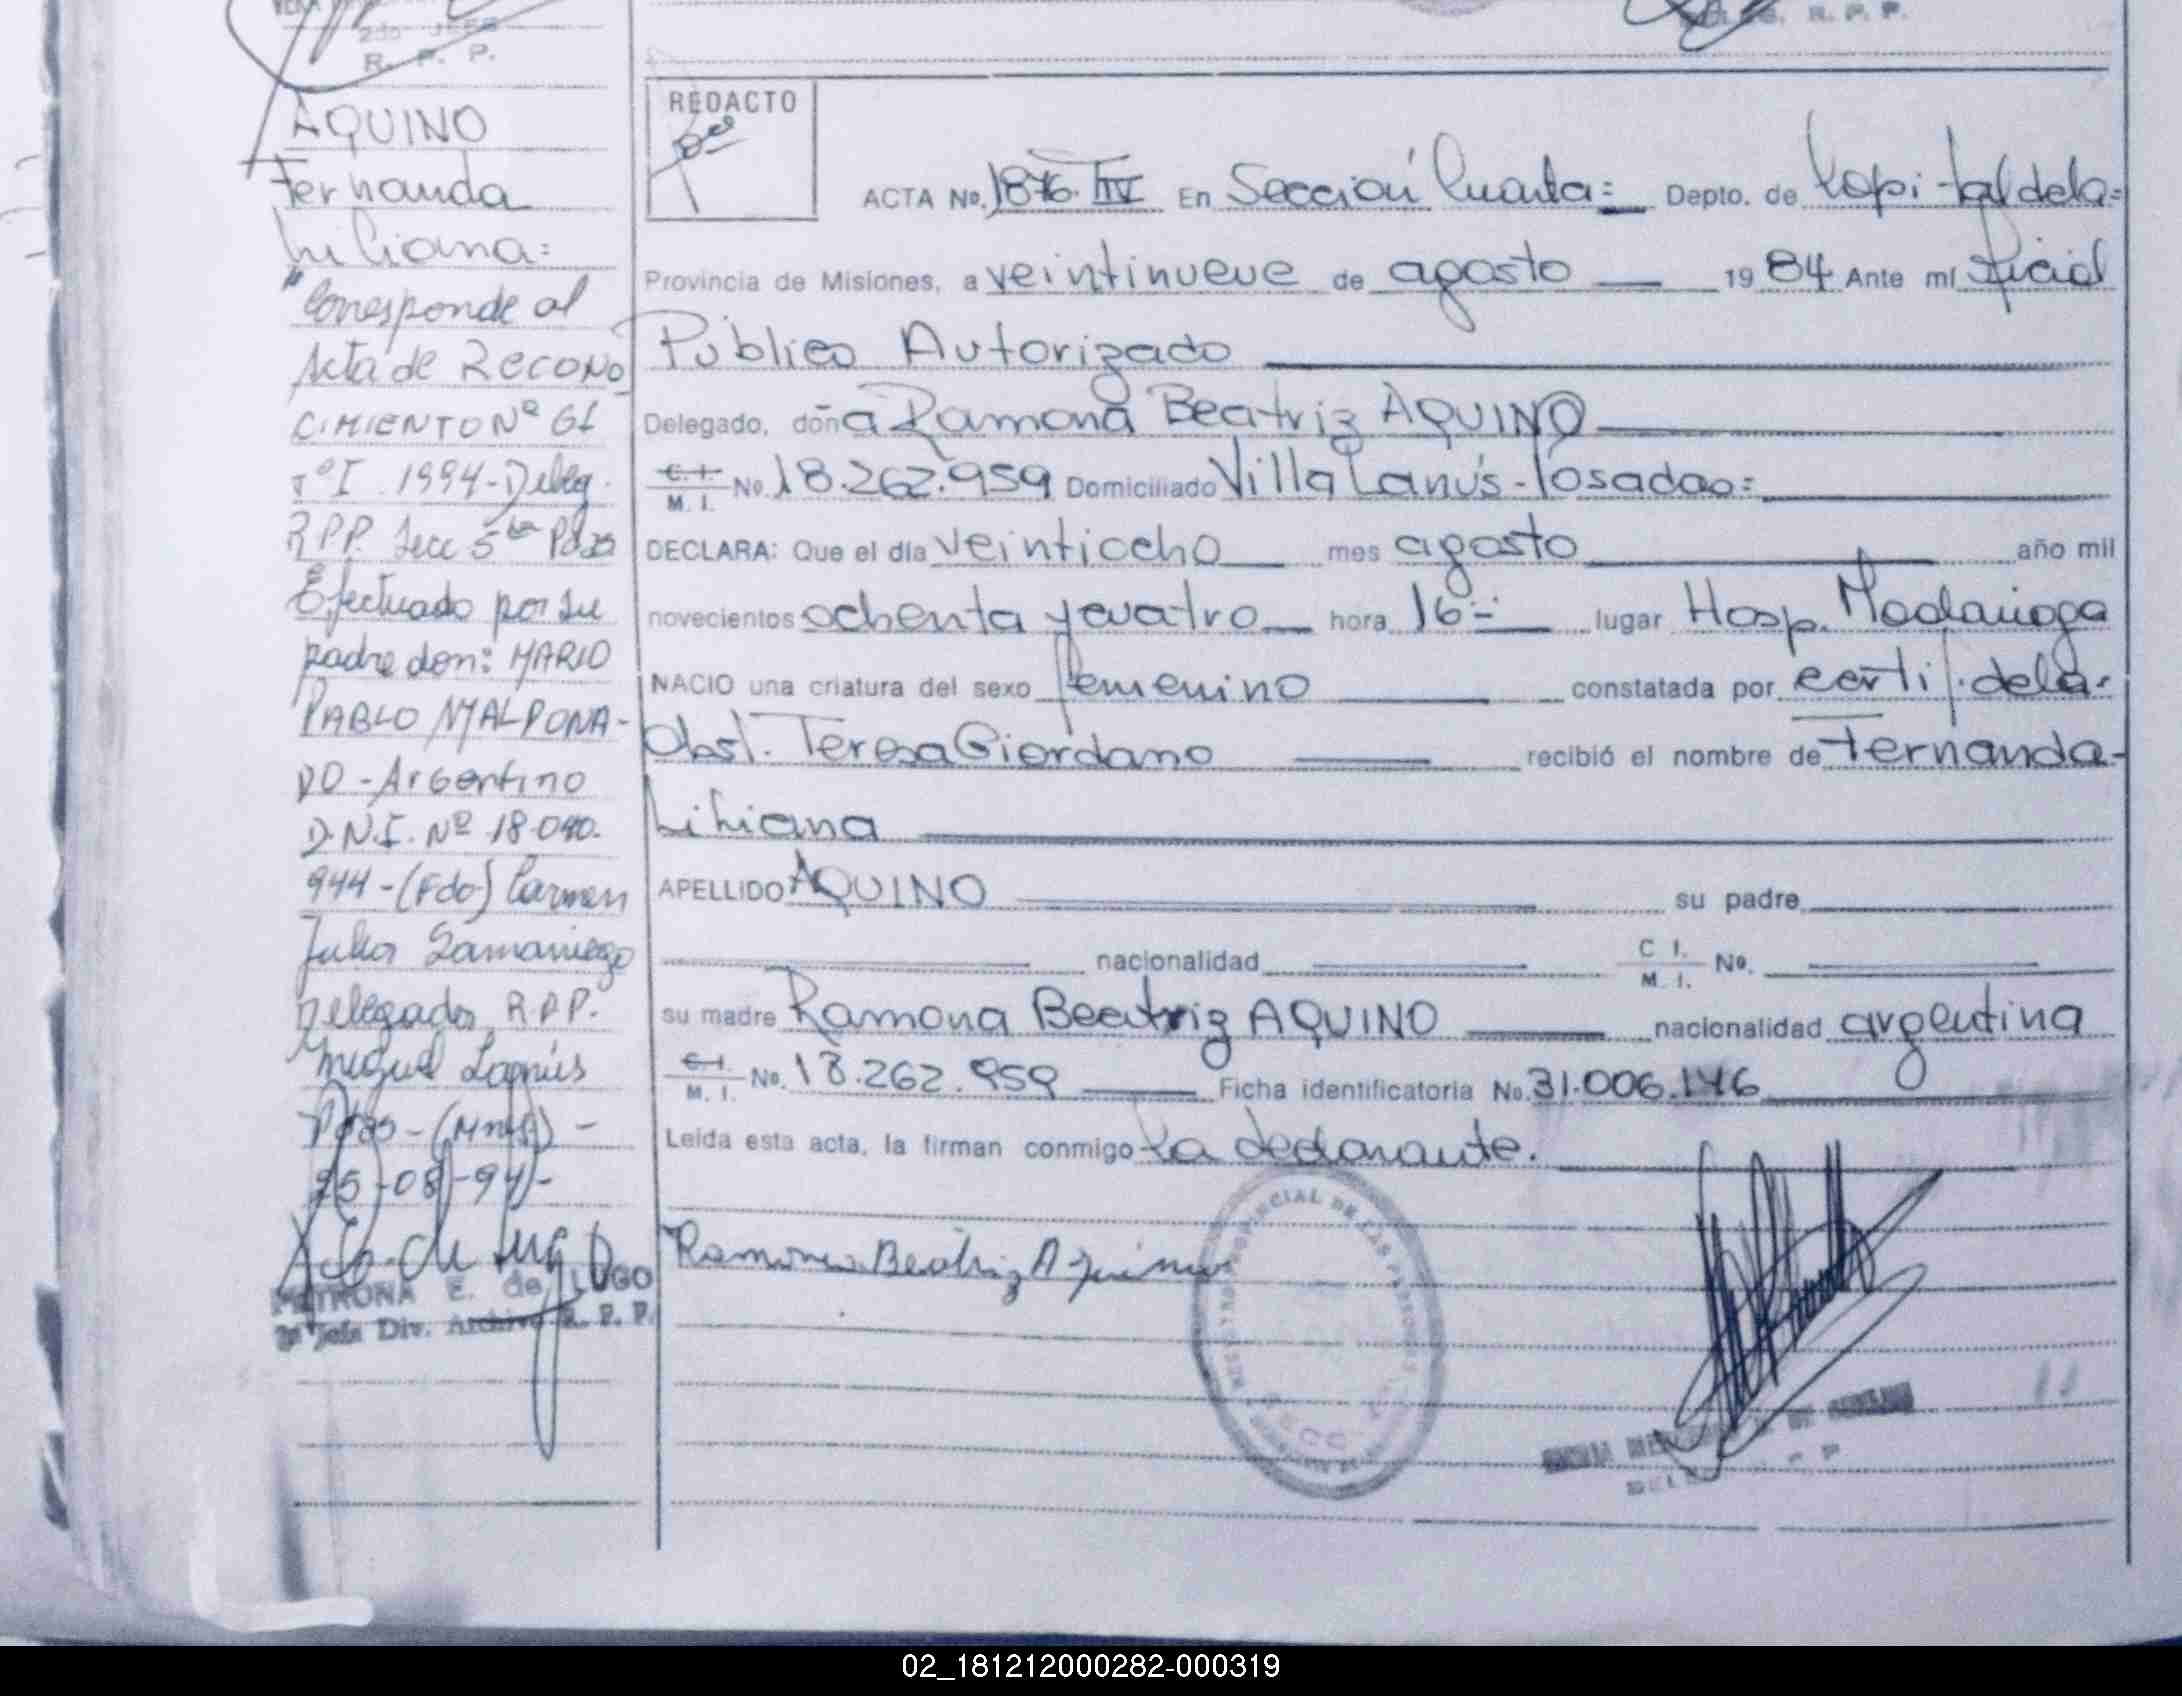 2do JEFE
R. P. P.
R. P. P.
AQUINO
Fernanda
Liliana:
"Corresponde al
Acta de Recono
CIMIENTO Nº 61
Tº I 1994-Deleg.
R.P.P. Secc 5ta Pdas
Efectuado por su
padre don: MARIO
PABLO MALDONA-
DO - Argentino
D.N.I. Nº 18.040.
944-(Fdo) Carmen
Julia Samaniego
Delegada R.P.P.
Miguel Lanús
Pdas - (Mnes) -
25-08-94-
PETRONA E. de LUGO
2º Jefe Div. Archivo R. P. P.
REDACTO
ACTA No. 1876. T IV En Sección Cuarta= Depto. de Capital dela=
Provincia de Misiones, a veintinueve de agosto 1984 Ante mí Oficial
Público Autorizado
Delegado, doña Ramona Beatriz AQUINO
C. I. M. I. No. 18.262.959 Domiciliado Villa Lanús-Posadas=
DECLARA: Que el día veintiocho mes agosto año mil
novecientos ochenta y cuatro hora 16= lugar Hosp. Madariaga
NACIO una criatura del sexo femenino constatada por certif. dela-
Obst. Teresa Giordano recibió el nombre de Fernanda-
Liliana
APELLIDO AQUINO su padre
nacionalidad C I. M. I. No.
su madre Ramona Beatriz AQUINO nacionalidad argentina
C. I. M. I. No. 18.262.959 Ficha identificatoria No. 31.006.146
Leída esta acta, la firman conmigo la declarante.
Ramona Beatriz Aquino
PROVINCIAL DE LAS PERSONAS
02_181212000282-000319